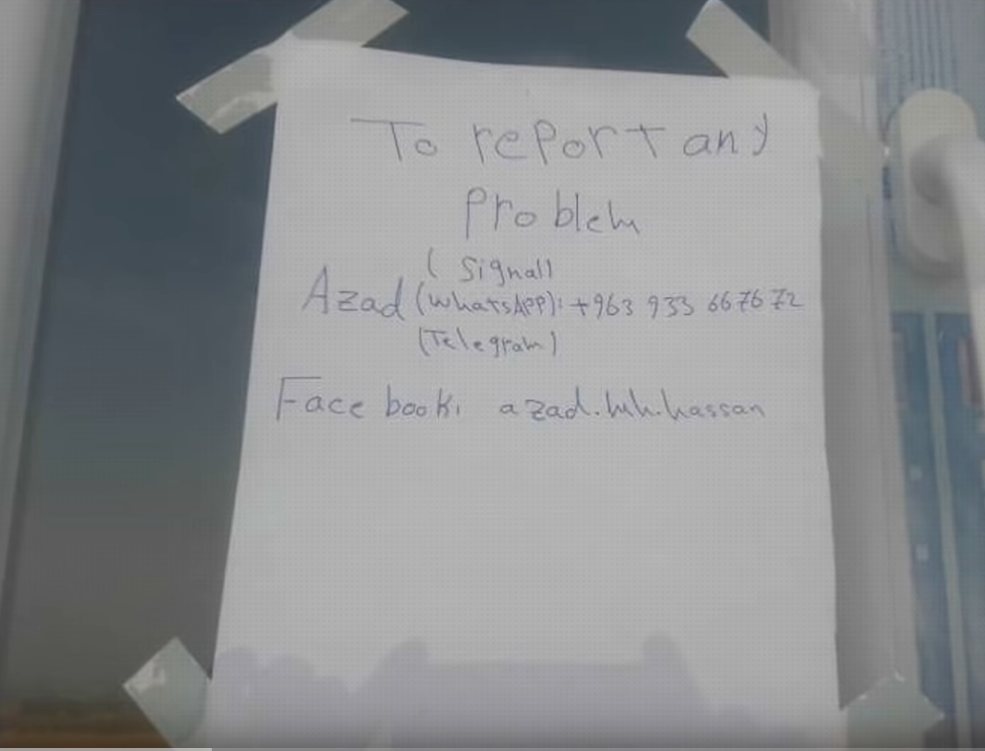 To report any
problem
(Signal)
Azad (WhatsApp): +963 933 667672
(Telegram)
Face book: azad.mh.hassan